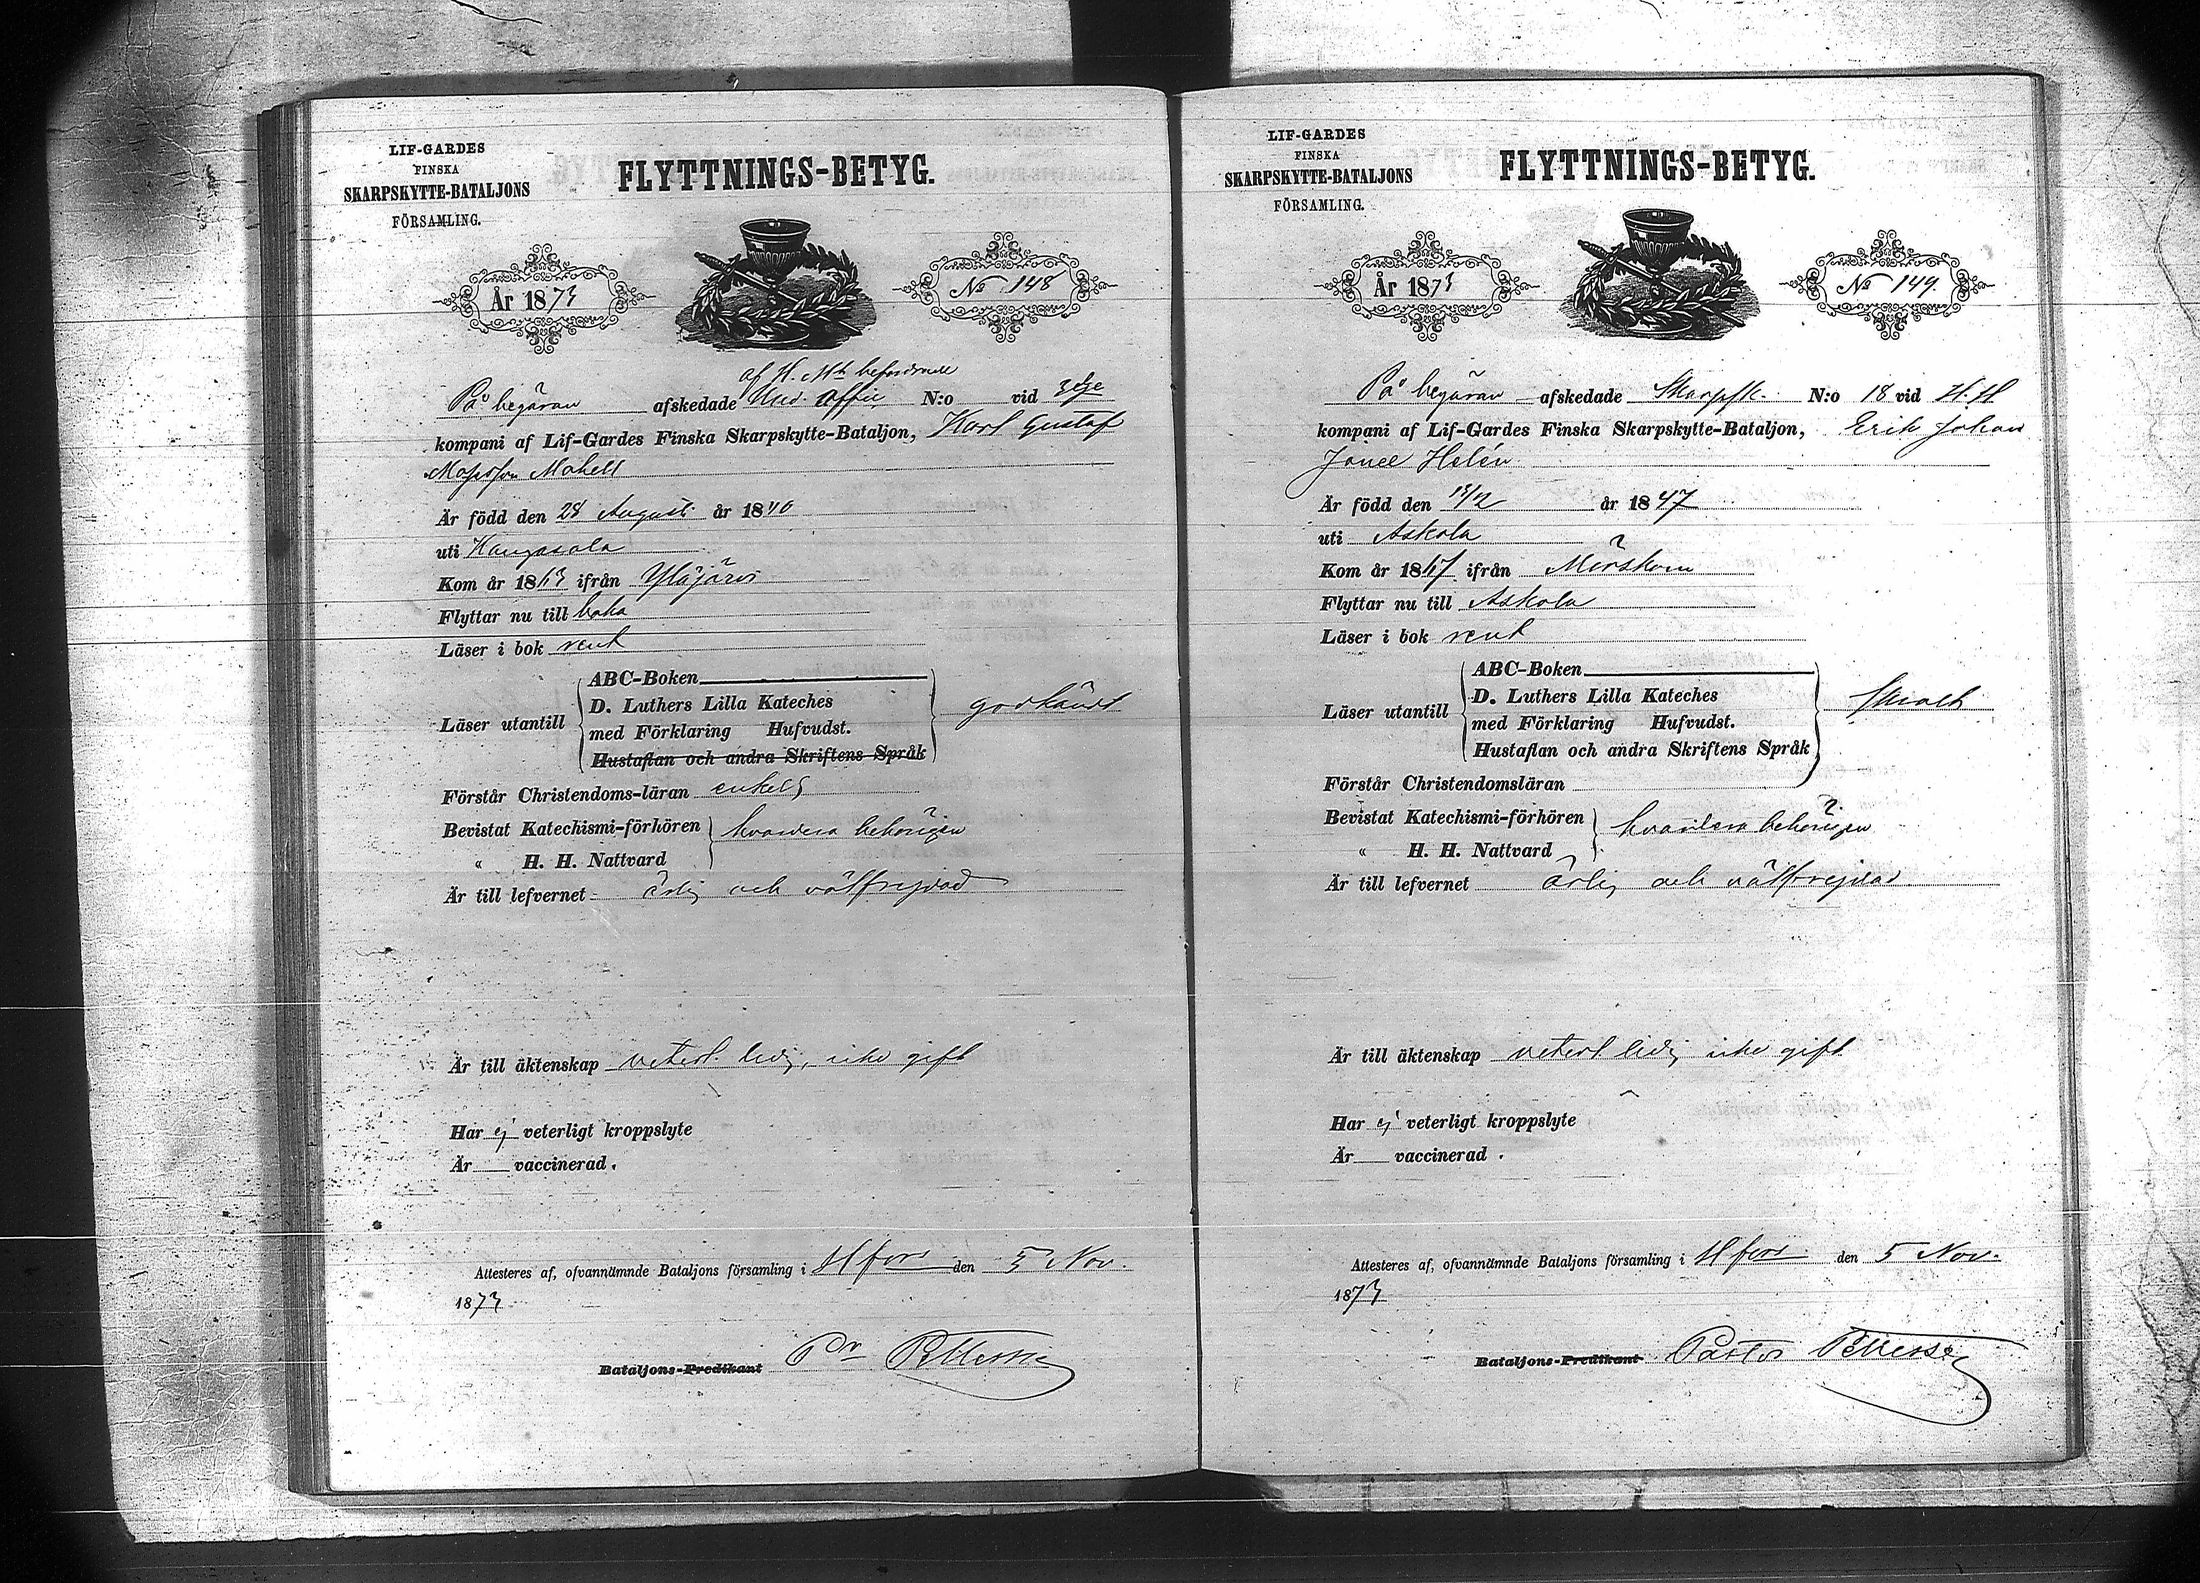 LIF-GARDES
FINSKA
SKARPSKYTTE-BATALJONS
FÖRSAMLING.
FLYTTNINGS-BETYG.
År 1873
No 148
af H. Mt befordrade
På begäran afskedade Und. Offic. N:o vid 3dje
kompani af Lif-Gardes Finska Skarpskytte-Bataljon, Karl Gustaf
Mahell
Är född den 28 Augusti år 1840
uti Kangasala
Kom år 1863 ifrån Ylöjärvi
Flyttar nu till
Läser i bok rent
Läser utantill
ABC-Boken
D. Luthers Lilla Kateches
med Förklaring Hufvudst.
Hustaflan och andra Skriftens Språk
godkändt
Förstår Christendoms-läran enkelt
Bevistat Katechismi-förhören
„ H. H. Nattvard
behörigen
Är till lefvernet ärlig och välfrejdad
Är till äktenskap veterl. ledig, icke gift
Har ej veterligt kroppslyte
Är vaccinerad.
Attesteras af, ofvannämnde Bataljons församling i H:fors den 5 Nov.
1873
Bataljons-Predikant Pr
LIF-GARDES
FINSKA
SKARPSKYTTE-BATALJONS
FÖRSAMLING.
FLYTTNINGS-BETYG.
År 1873
No 149.
På begäran afskedade Skarpsk. N:o 18 vid H. H
kompani af Lif-Gardes Finska Skarpskytte-Bataljon, Erik Johan
Helén
Är född den 13/12 år 1847
uti Askola
Kom år 1867 ifrån Mörskom
Flyttar nu till Askola
Läser i bok rent
Läser utantill
ABC-Boken
D. Luthers Lilla Kateches
med Förklaring Hufvudst.
Hustaflan och andra Skriftens Språk
Förstår Christendomsläran
Bevistat Katechismi-förhören
„ H. H. Nattvard
behörigen
Är till lefvernet ärlig och välfrejdad.
Är till äktenskap veterl ledig icke gift
Har ej veterligt kroppslyte
Är vaccinerad.
Attesteres af, ofvannämnde Bataljons församling i H:fors den 5 Nov.
1873
Bataljons-Predikant Pastor